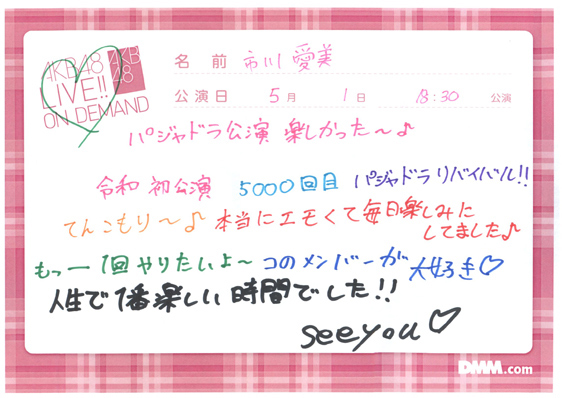 AKB48
LIVE!!
ON DEMAND
AKB
48
名前 市川愛美
公演日 5月 1日 18:30 公演
パジャドラ公演 楽しかった〜♪
令和初公演 5000回目 パジャドラ リバイバル!!
てんこもり〜♪ 本当にエモくて毎日楽しみに
してました♪
もっー1回やりたいよ〜 このメンバーが大好き♡
人生で1番楽しい時間でした!!
seeyou♡
DMM.com